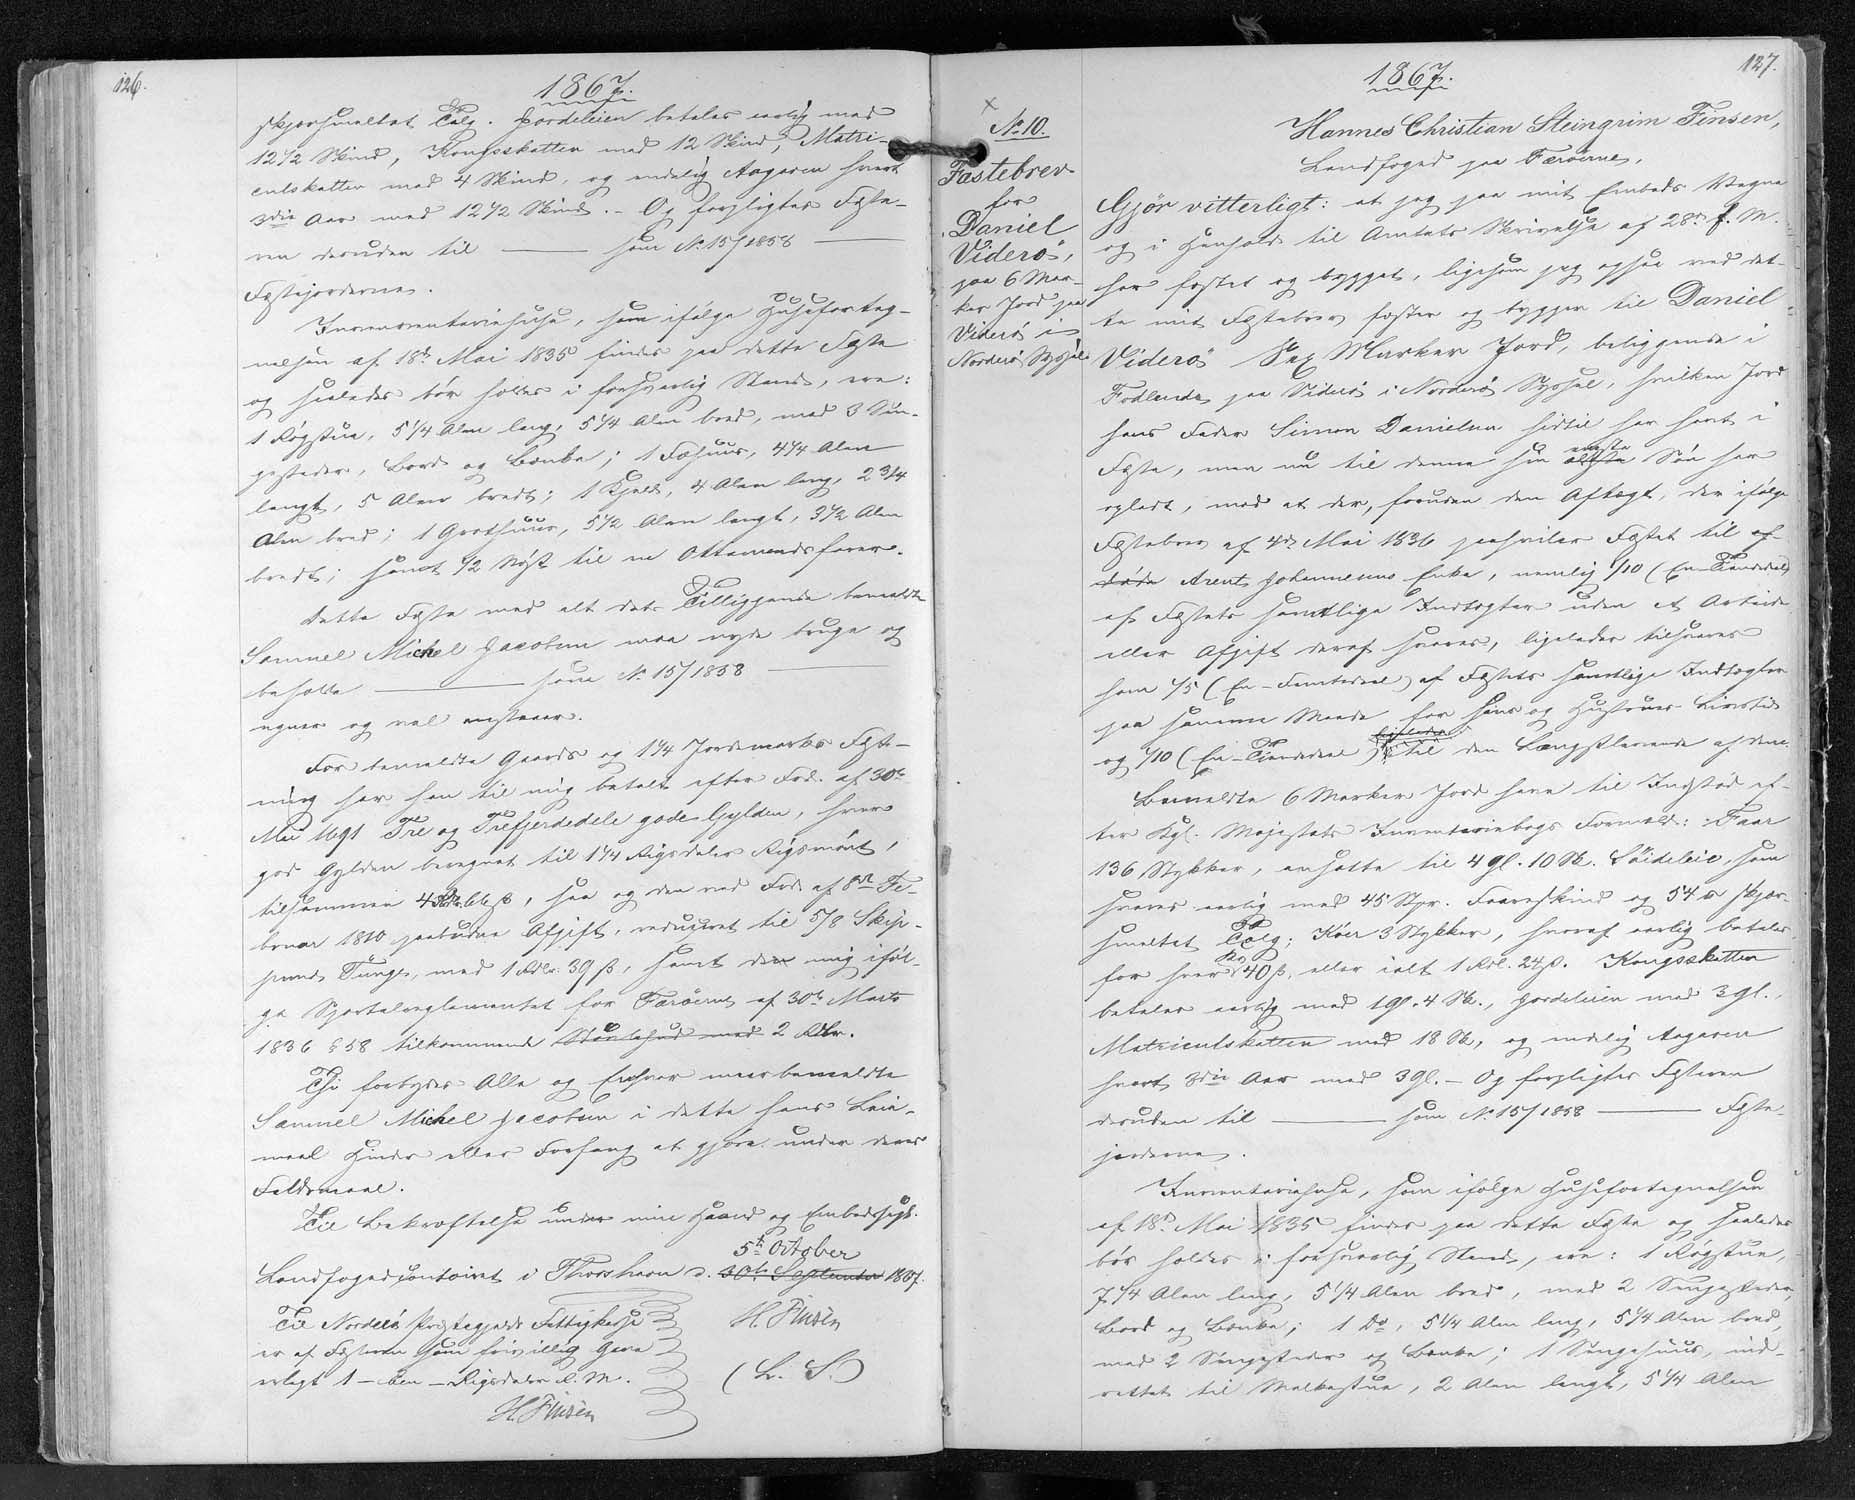 126.
1867.
skjærsmeltet Talg. Jordeleien betales aarlig med
12 1/2 Skind, Kongsskatten med 12 Skind, Matri-
culskatten med 4 Skind, og endelig Aagaven hvert
3die Aar med 12 1/2 Skind. - Og forpligtes Fæste-
ren desuden til ——— som No 15/1858 ———
Fæstejorderne.
Inventariehuse, som ifølge Huusforteg-
nelsen af 18de Mai 1835 findes paa dette Fæste
og saaledes bør holdes i forsvarlig Stand, ere:
1 Røgstue, 5 1/4 Alen lang, 5 1/4 Alen bred, med 3 Sen-
gesteder, Bord og Bænke; 1 Fæhuus, 4 1/4 Alen
langt, 5 Alen bredt; 1 Hjeld, 4 Alen lang, 2 3/4
Alen bred; 1 Grothuus, 5 1/2 Alen langt, 3 1/2 Alen
bredt; samt 1/2 Nøst til en Ottemandsfarer.
Dette Fæste med alt dets Tilliggende bemeldte
Samuel Michel Jacobsen maa nyde bruge og
beholde ——— som No 15/1858 ———
egner og vel anstaaer.
For bemeldte Gaards og 1 1/4 Jordemarks Fæst-
ning har han til mig betalt efter Frd. af 30te
Mai 1691 Tre og Trefjerdedele gode Gylden, hver
god Gylden beregnet til 1 1/4 Rigsdaler Rigsmønt,
tilsammen 4 Rdl. 66 ß, saa og den ved Frd. af 8de Fe-
bruar 1810 paabudne Afgift, reduceret til 5/8 Skip-
punds Tynge, med 1 Rdlr. 39 ß, samt den mig iføl-
ge Sportelreglementet for Færøerne af 30te Marts
1836 § 58 tilkommende Stenbehud med 2 Rdlr.
Thi forbydes Alle og Enhver meerbemeldte
Samuel Michel Jacobsen i dette hans Leie-
maal Hinder eller Forfang at gjøre under deres
Faldsmaal.
Til Bekræftelse under min Haand og Embedssegl.
5te October
Landfogedcontoiret i Thorshavn d. 30te September 1867.
Til Norderø Præstegjelds Fattigkasse
er af Fæsteren som frivillig Gave
erlagt 1 - Een - Rigsdaler R. M.
H. Finsen
H. Finsen
(L. S.)
127.
1867.
No 10.
Fæstebrev
for
Daniel
Viderø,
paa 6 Mar-
ker Jord paa
Viderø i
Norderø Syssel.
Hannes Christian Steingrim Finsen,
Landfoged paa Færøerne,
Gjør vitterligt: at jeg paa mit Embeds Vegne
og i Henhold til Amtets Skrivelse af 28de f. M.
har fæstet og bygget, ligesom jeg ogsaa ved det-
te mit Fæstebrev fæster og bygger til Daniel
Viderø Sex Marker Jord, beliggende i
Fodlendes paa Viderø i Norderø Syssel, hvilken Jord
hans Fader Simon Danielsen hidtil har havt i
Fæste, men nu til denne sin ældste yngste Søn har
opladt, mod at der, foruden den Aftægt, der ifølge
Fæstebrev af 4de Mai 1836 paahviler Fæstet til af-
døde Arent Johannesens Enke, nemlig 1/10 (En Tiendedeel)
af Fæstets samtlige Indtægter uden at Arbeide
eller Afgift deraf svares, ligeledes tilsvares
ham 1/5 (En-Femtedeel) af Fæstets samtlige Indtægter
paa samme Maade for hans og Hustrues Livstid
og 1/10 (En-Tiendedeel) til den Længstlevende af dem.
Bemeldte 6 Marker Jord have til Indstød ef-
ter Kgl. Majestæts Inventariebogs Formeld: Faar
136 Stykker, ansatte til 4 gl. 10 Sk. Søideleie, som
svares aarlig med 45 Spr. Faareskind og 54 ℔ skjær-
smeltet Talg; Køer 3 Stykker, hvoraf aarlig betales
for hver Ko 40 ß. eller ialt 1 Rdl. 24 ß. Kongsskatten
betales aarlig med 1 gl. 4 Sk., Jordeleien med 3 gl.,
Matriculskatten med 18 Sk, og endelig Aagaven
hvert 3die Aar med 3 gl. - Og forpligtes Fæsteren
desuden til ——— som No 15/1858 ——— Fæste-
jorderne.
Inventariehuse, som ifølge Huusfortegnelsen
af 18de Mai 1835 findes paa dette Fæste og saaledes
bør holdes i forsvarlig Stand, ere: 1 Røgstue,
7 1/4 Alen lang, 5 1/4 Alen bred, med 2 Sengesteder,
Bord og Bænke; 1 Do, 5 1/4 Alen lang, 5 1/4 Alen bred,
med 2 Sengesteder og Bænke; 1 Sengehuus, ind-
rettet til Malkestue, 2 Alen langt, 5 1/4 Alen